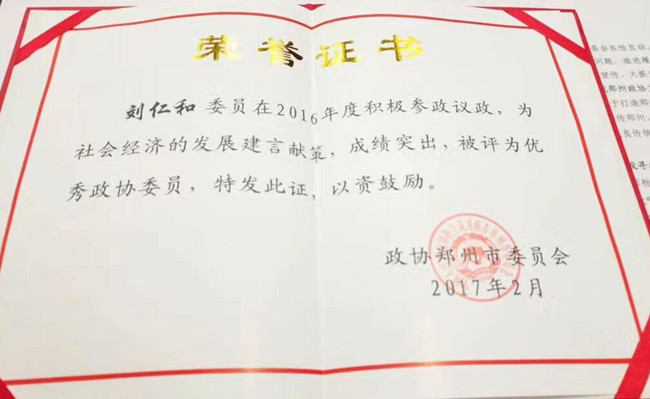 荣誉证书
刘仁和 委员在2016年度积极参政议政，为
社会经济的发展建言献策，成绩突出，被评为优
秀政协委员，特发此证，以资鼓励。
政协郑州市委员会
2017年2月